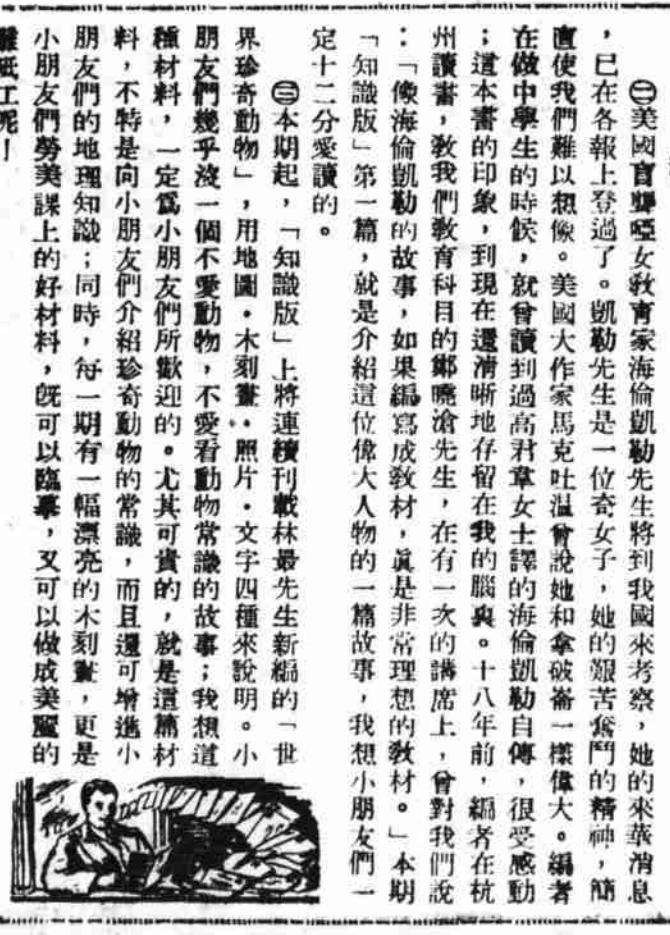 ㊁美國盲聾啞女教育家海倫凱勒先生將到我國來考察，她的來華消息
，已在各報上登過了。凱勒先生是一位奇女子，她的艱苦奮鬥的精神，簡
直使我們難以想像。美國大作家馬克吐温曾說她和拿破崙一樣偉大。編者
在做中學生的時候，就曾讀到過高君韋女士譯的海倫凱勒自傳，很受感動
；這本書的印象，到現在還清晰地存留在我的腦裏。十八年前，編者在杭
州讀書，教我們教育科目的鄭曉滄先生，在有一次的講席上，曾對我們說
：「像海倫凱勒的故事，如果編寫成教材，眞是非常理想的教材。」本期
「知識版」第一篇，就是介紹這位偉大人物的一篇故事，我想小朋友們一
定十二分愛讀的。
㊂本期起，「知識版」上將連續刊載林最先生新編的「世
界珍奇動物」，用地圖・木刻畫・照片・文字四種來說明。小
朋友們幾乎沒一個不愛動物，不愛看動物常識的故事；我想這
種材料，一定爲小朋友們所歡迎的。尤其可貴的，就是這篇材
料，不特是向小朋友們介紹珍奇動物的常識，而且還可增進小
朋友們的地理知識；同時，每一期有一幅漂亮的木刻畫，更是
小朋友們勞美課上的好材料，旣可以臨摹，又可以做成美麗的
紙工呢！